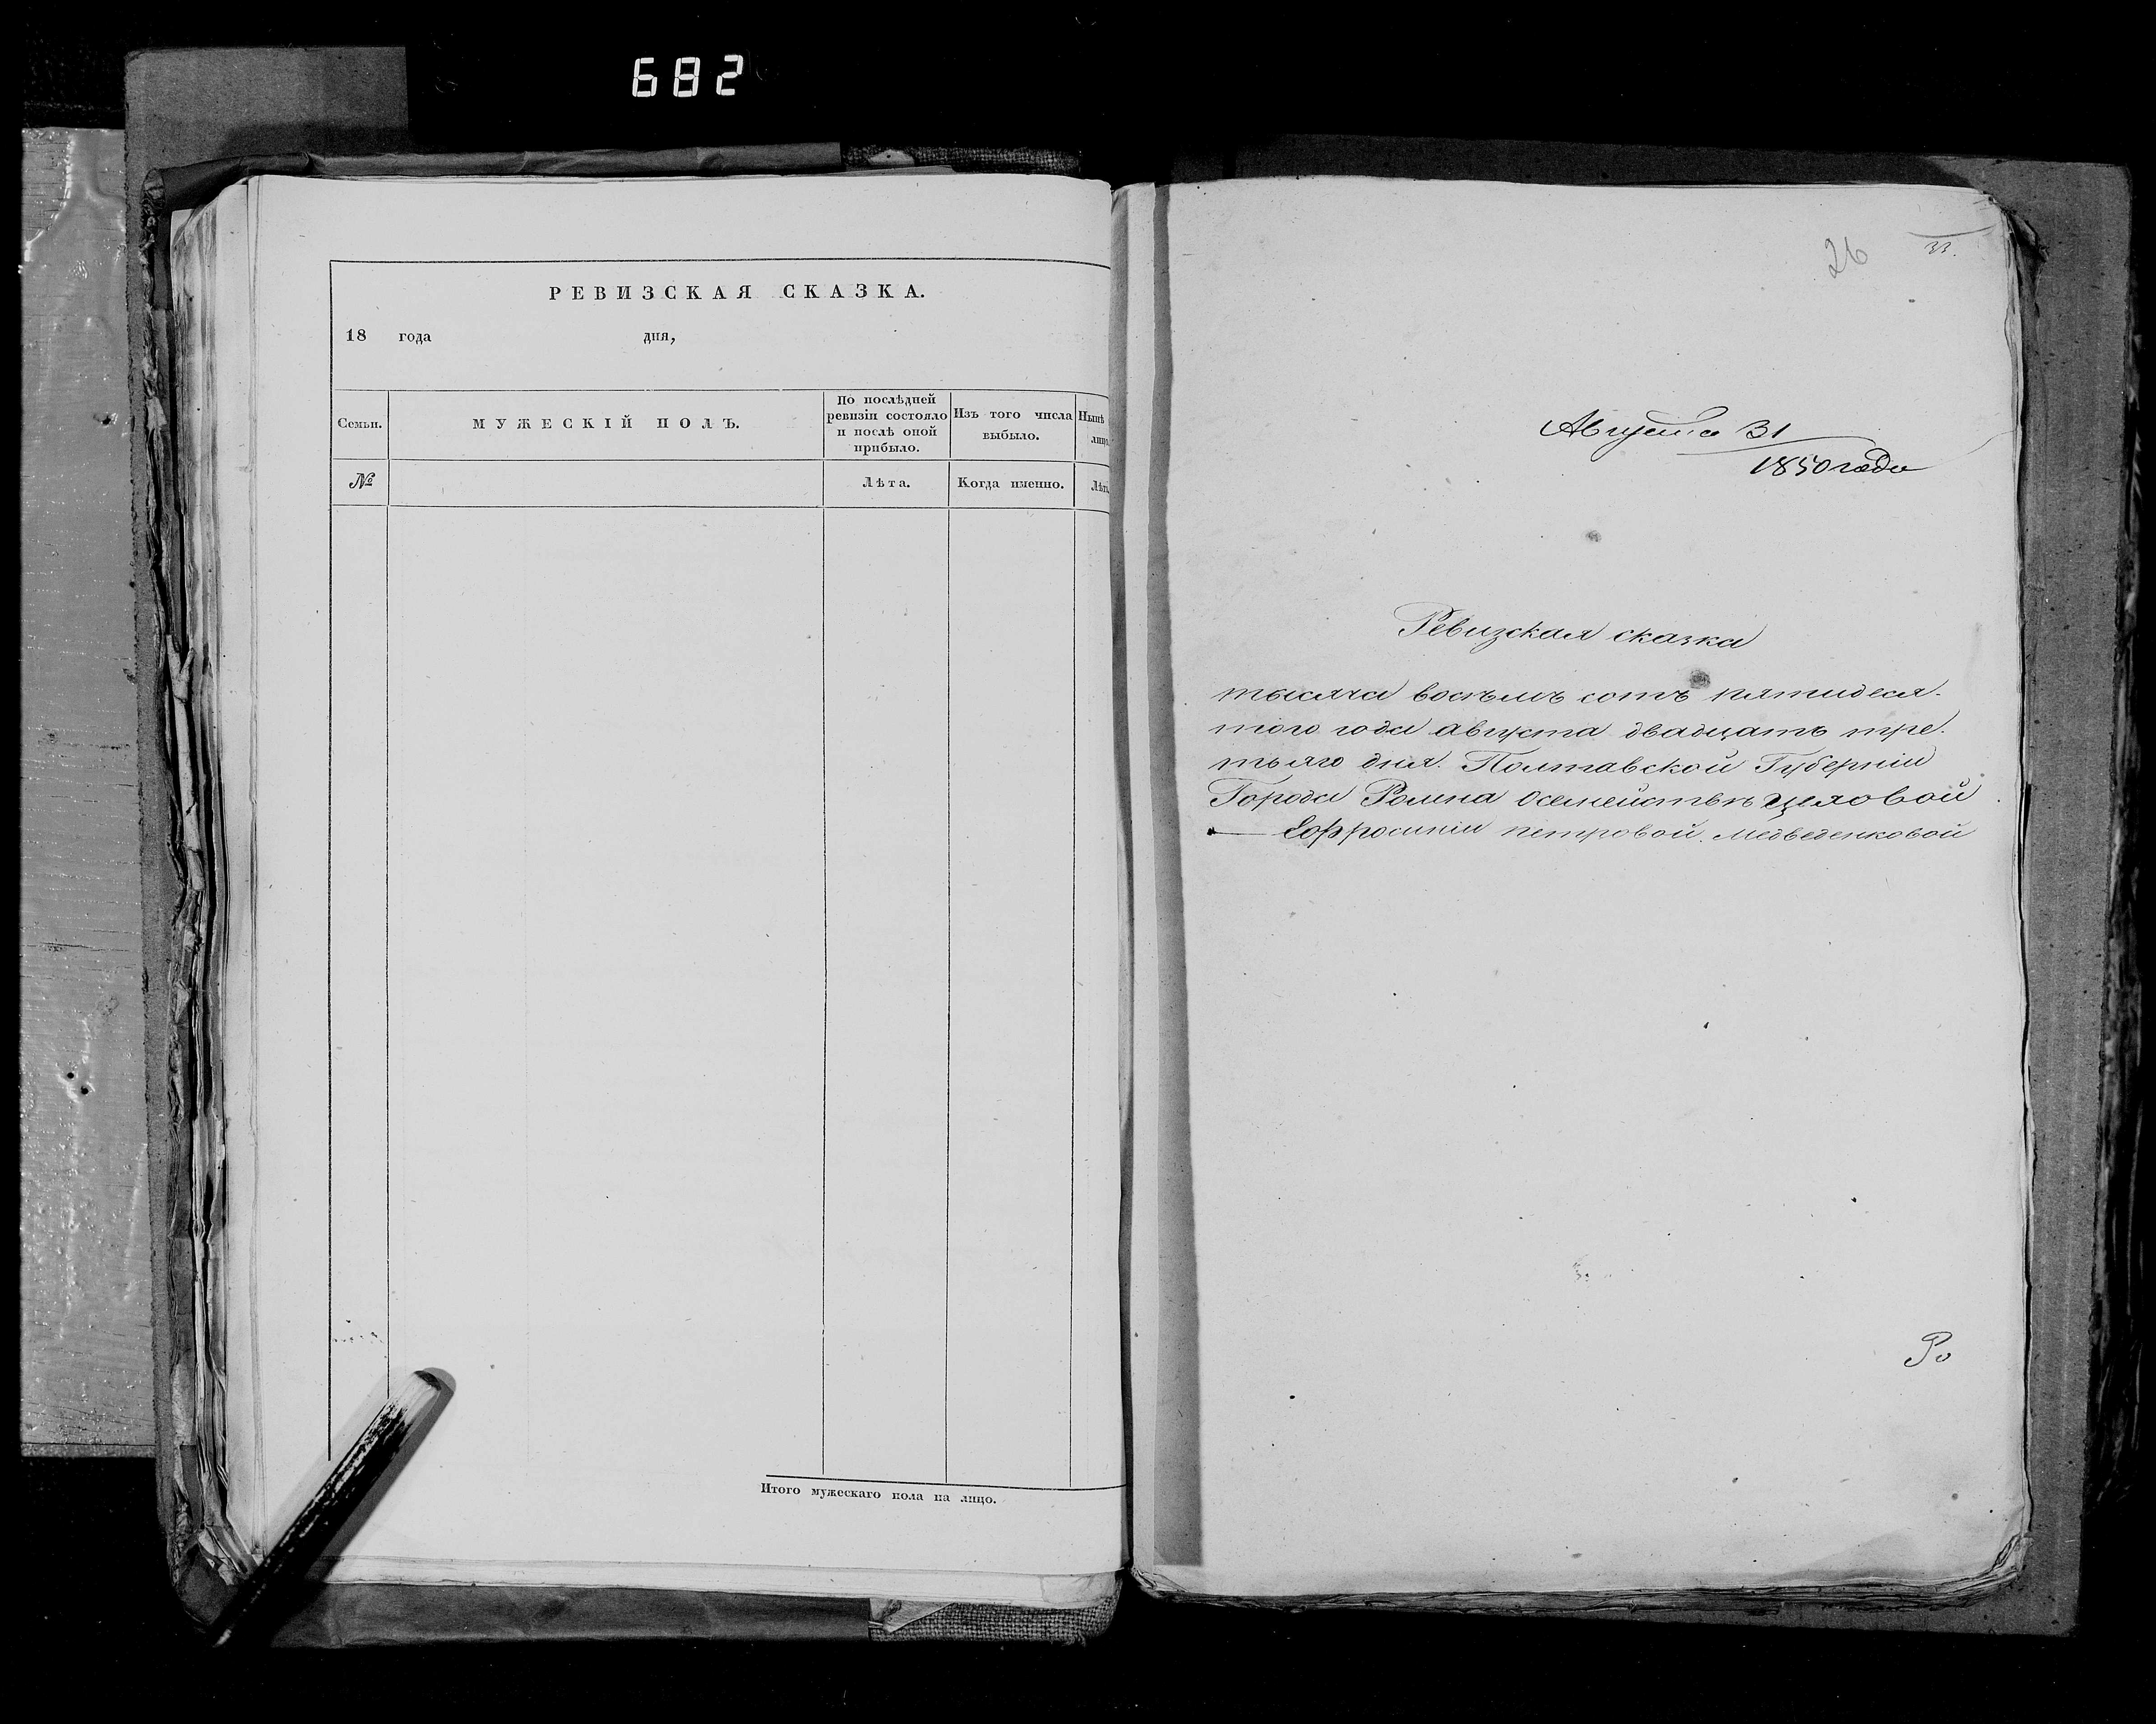 682
РЕВИЗСКАЯ СКАЗКА.
18 года дня,
Семьи.
МУЖЕСКІЙ ПОЛЪ.
По послѣдней ревизіи состояло и послѣ оной прибыло.
Изъ того числа выбыло.
Нынѣ лицо.
№
Лѣта.
Когда именно.
Лѣта
Итого мужескаго пола на лицо.
26
33.
Августа 31
1850 года
Ревизская сказка
тысяча восѣмъ сотъ пятидеся-
того года августа двадцать тре-
тьяго дня. Полтавской Губерніи
Города Ромна о семействѣ
Ефросиніи петровой. Медведенковой
Ро